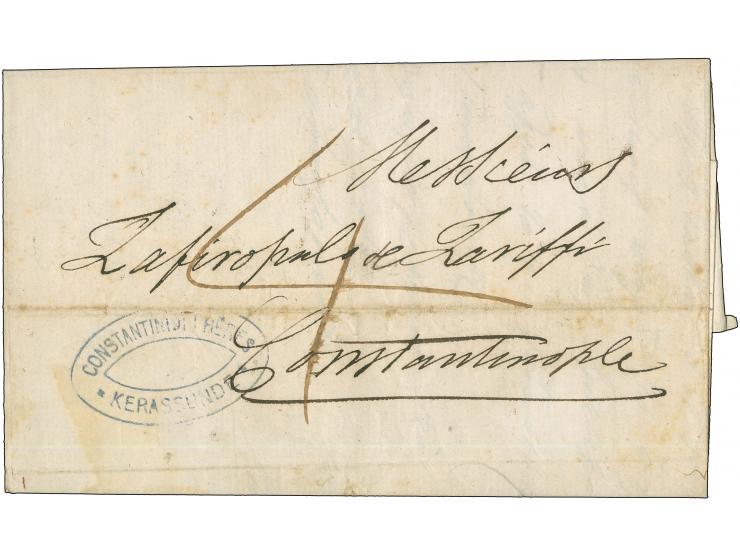 Messieurs
Zafiropulo & Zariffi
Constantinople
4
CONSTANTINIDI FRÈRES
* KERASSUNDE *